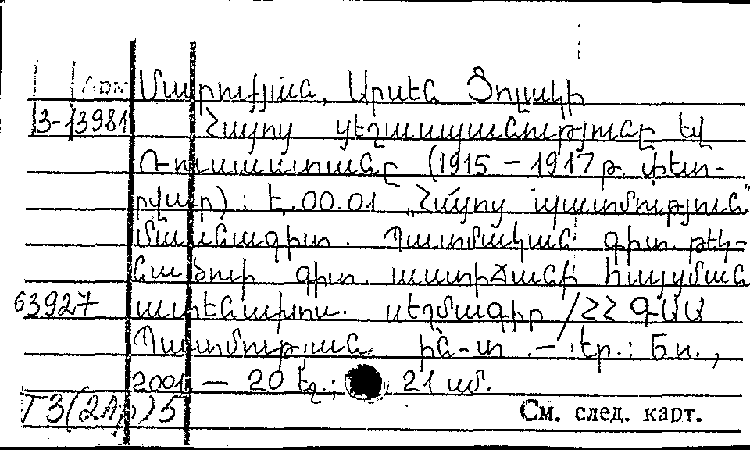 Մարուքյան, Արսեն Ցոլակի
3-13981 Հայոց ցեղասպանությունը եվ
Ռուսաստանը (1915 – 1917 թ. փետ-
րվար) : Է.00.01 „Հայոց պատմություն"
մասնագիտ. Պատմական գիտ. թեկ-
նածուի գիտ. աստիճանի հայցման
63927 ատենախոս. սեղմագիր / ՀՀ ԳԱԱ
Պատմության ին-տ. – Եր. : Б.и.,
2001 – 20 էջ; 21 սմ.
Т3(2Ар)5
См. след. карт.